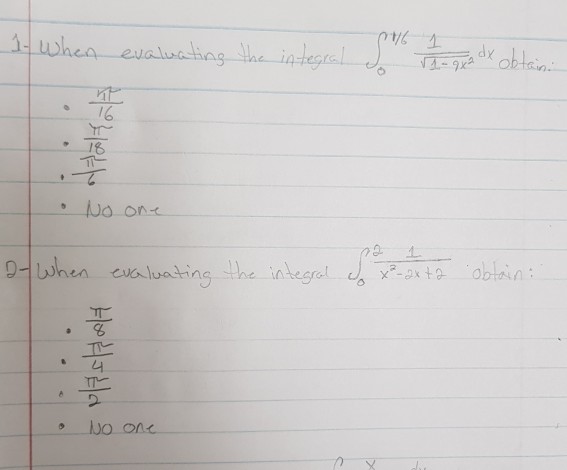 1- When evaluating the integral ∫₀^1/6 1/√(1-9x²) dx obtain:
• π/16
• π/18
• π/6
• No one
2- When evaluating the integral ∫₀² 1/(x²-2x+2) obtain:
• π/8
• π/4
• π/2
• No one